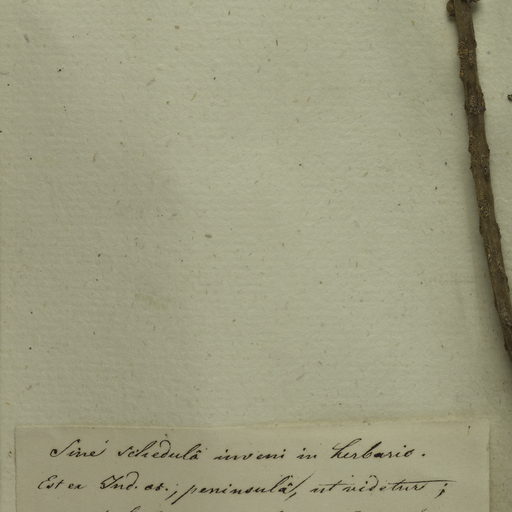 Sine schedulâ inveni in herbario.
Est ex Ind. or., peninsulâ, ut videtur;